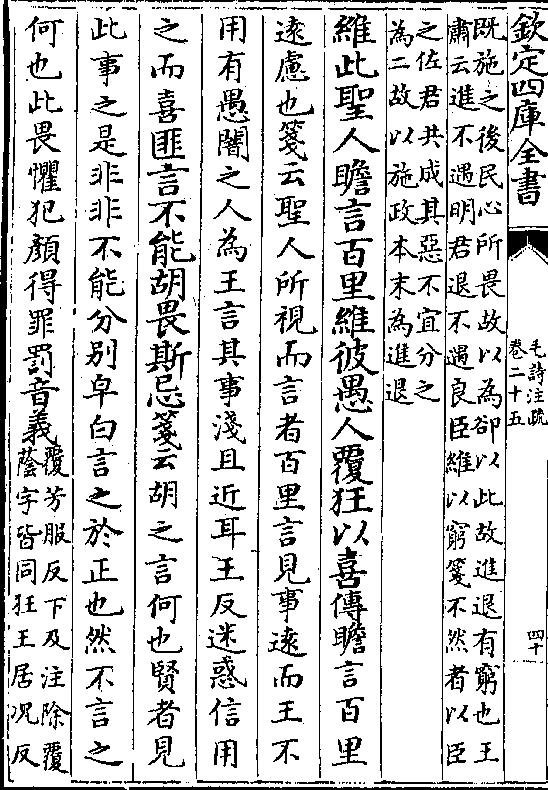 欽定四庫全書
毛詩注疏
卷二十五
四十
既施之後民心所畏故以為卻以此故進退有窮也王
肅云進不遇明君退不遇良臣維以窮箋不然者以臣
之佐君共成其惡不宜分之
為二故以施政本末為進退
維此聖人瞻言百里維彼愚人覆狂以喜傳瞻言百里
遠慮也箋云聖人所視而言者百里言見事遠而王不
用有愚闇之人為王言其事淺且近耳王反迷惑信用
之而喜匪言不能胡畏斯忌箋云胡之言何也賢者見
此事之是非非不能分別皁白言之於正也然不言之
何也此畏懼犯顏得罪罰音義覆芳服反下及注除覆
蔭字皆同狂王居況反